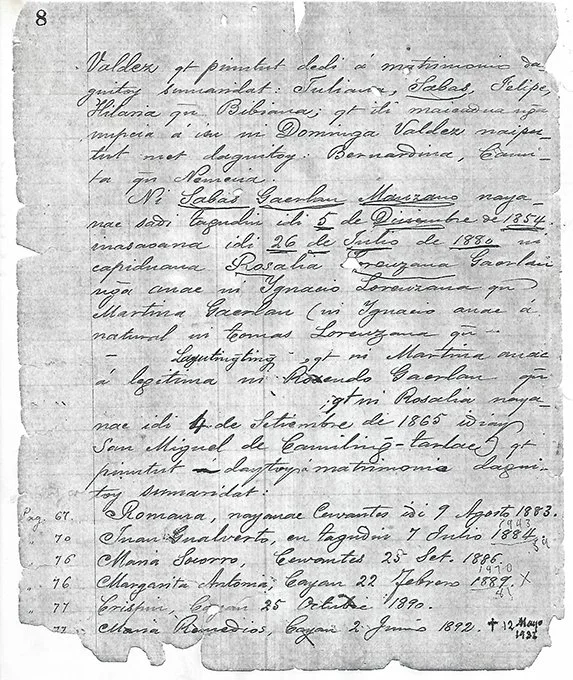 8
Valdez qt pinutut dedi á matrimonio da-
guitoy sumaridat: Juliana, Sabas, Felipe,
Hilaria qn Bibiana; qt iti maicadua nga
á ni Dominga Valdez naipu-
tut met daguitoy: Bernardina, Cami-
la qn Nemecia.
Ni Sabas Gaerlan Manzano naya-
nac sadi Tagudin idi 5 de Diciembre de 1854.
masacana idi 26 de Julio de 1880 ni
capiduana Rosalia Lorenzana Gaerlan
nga anac ni Ignacio Lorenzana qn
Martina Gaerlan (ni Ignacio anac á
natural ni Tomas Lorenzana qn -
- Lagutingting, qt ni Martina anac
á legitima ni Rosendo Gaerlan qn
; qt ni Rosalia naya-
nac idi 4 de Setiembre de 1865 idiay
San Miguel de Camiling-Tarlac) qt
pinutut - daytoy á matrimonio dagui-
toy sumaridat:
Pag. 67. Romana, nayanac Cervantes idi 9 Agosto 1883.
1943
" 70 Juan Gualverto, en Tagudin 7 Julio 1884.
59
" 76 Maria Socorro, Cervantes 25 Set. 1886.
1970
" 76 Margarita Antonia, Cayan 22 Febrero 1889. X
" 77 Crispin, Cayan 25 Octubre 1890.
" 77 Maria Remedios, Cayan 2 Junio 1892. ✝ 12 Mayo
1936